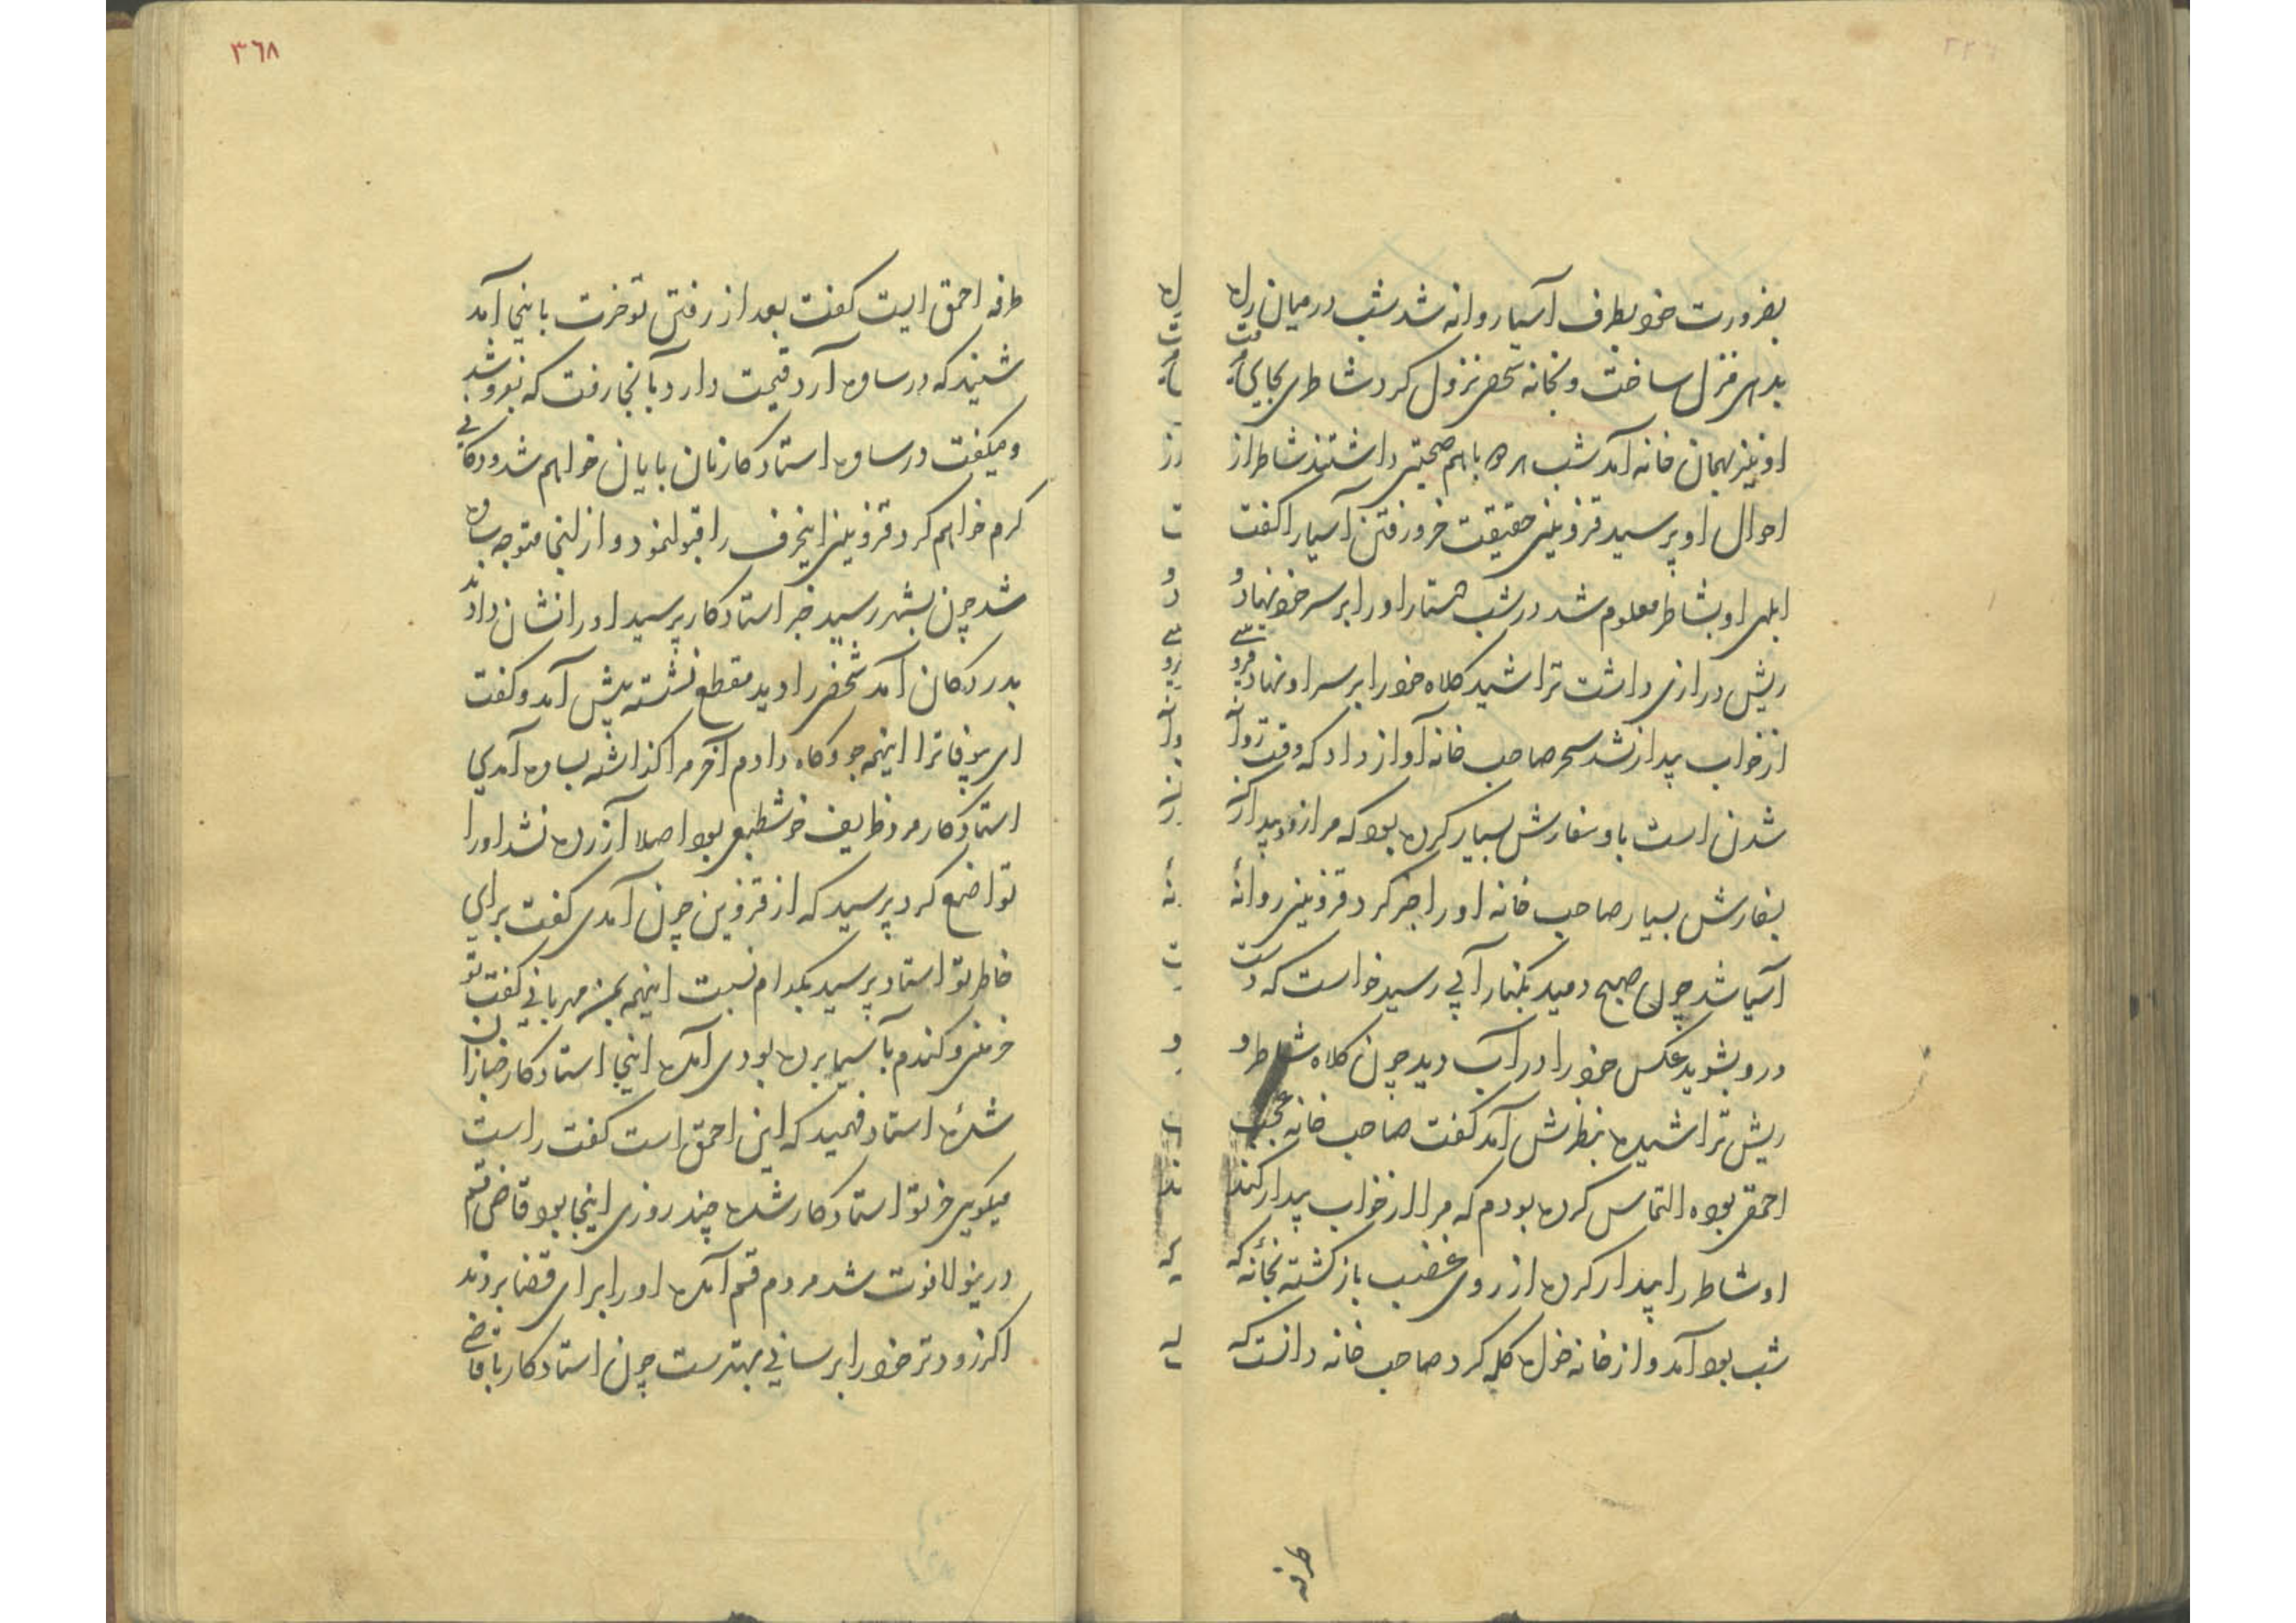 بضرورت خود بطرف آسیا روانه شد شب در میان راه
بدهی منزل ساخت و بخانه شخصی نزول کرد شاطری بجایی میرفت
او نیز بهمان خانه آمد شب هر دو باهم صحبتی داشتند شاطر از
احوال او پرسید قزوینی حقیقت خر و رفتن آسیا را گفت
ابلهی او بشاطر معلوم شد در شب دستار او را بر سر خود نهاد و
ریش درازی داشت تراشید کلاه خود را بر سر او نهاد قزوینی
از خواب بیدار نشد سحر صاحب خانه آواز داد که وقت روانه
شدن است باو سفارش بسیار کرده بود که مرا زود بیدار کنی
بسفارش بسیار صاحب خانه او را خبر کرد قزوینی روانهٔ
آسیا شد چون صبح دمید بکنار آبی رسید خواست که دست
و رو بشوید عکس خود را در آب دید چون کلاه شاطر و
ریش تراشیده بنظرش آمد گفت صاحب خانه عجب
احمقی بوده التماس کرده بودم که مرا از خواب بیدار کند
او شاطر را بیدار کرده از روی غضب باز گشته بخانهٔ که
شب بود آمد و از خانه خواه گله کرد صاحب خانه دانست که
طرفه
٣٦٨
طرفه احمق ایست گفت بعد از رفتن تو خرت باینجا آمد
شنید که در ساوه آرد قیمت دارد بآنجا رفت که بفروشد
و میگفت در ساوه استاد کار نان بایان خواهم شد و دکانی
گرم خواهم کرد قزوینی اینحرف را قبول نمود و از اینجا متوجه ساوه
شد چون بشهر رسید خبر استاد کار پرسید او را نشان دادند
بدر دکان آمد شخصی را دید مقطع نشسته پیش آمد و گفت
ای بیوفا ترا اینهمه جو و کاه دادم آخر مرا گذاشته بساوه آمدی
استاد کار مرد ظریف خوشطبعی بود اصلا آزرده نشد او را
تواضع کرد پرسید که از قزوین چون آمدی گفت برای
خاطر تو استاد پرسید بکدام نسبت اینهمه بمن مهربانی گفت تو
خر منی و گندم بآسیا برده بودی آمدهٔ اینجا استاد کار خبازان
شدهٔ استاد فهمید که این احمق است گفت راست
میگویی خر تو استاد کار شده چند روزی اینجا بود قاضی قم
درینولا فوت شد مردم قم آمده او را برای قضا بردند
اگر زودتر خود را برسانی بهترست چون استاد کار با قاضی